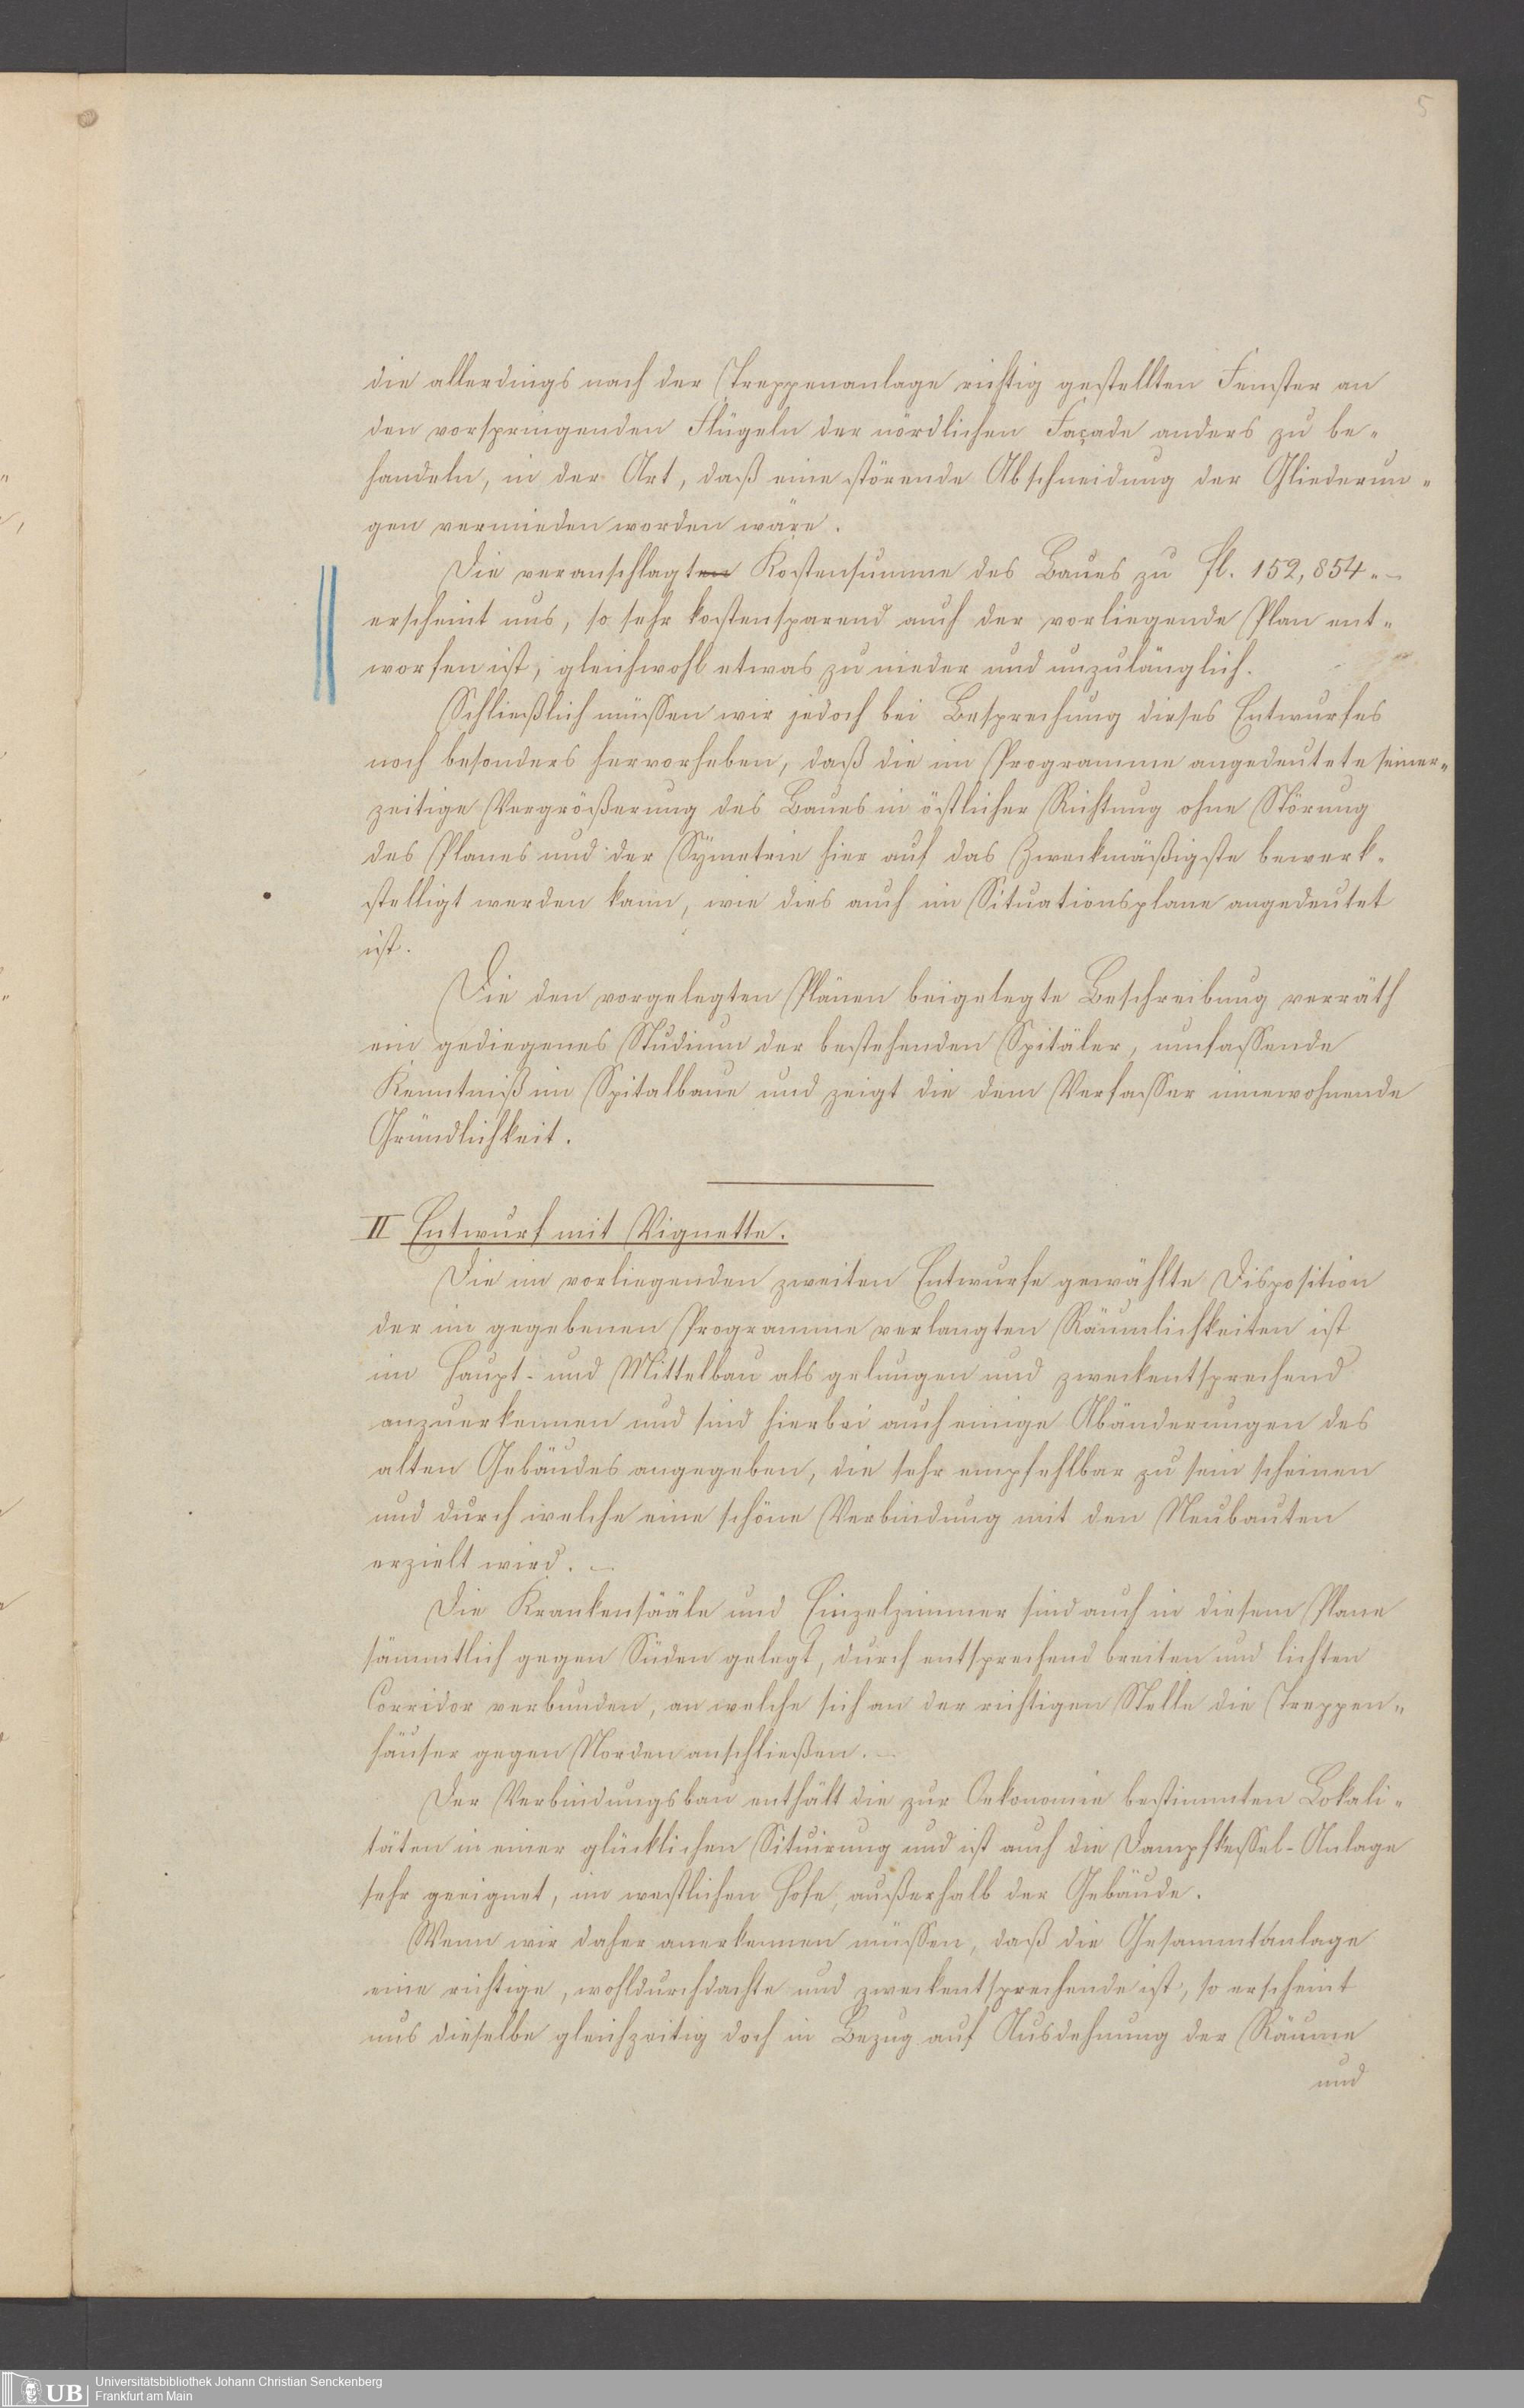 5
die allerdings nach der Treppenanlage richtig gestellten Fenster an
den vorspringenden Flügeln der nördlichen Façade anders zu be-
handeln, in der Art, daß eine störende Abschneidung der Gliederun-
gen vermieden worden wäre.
Die veranschlagten Kostensumme des Baues zu fl. 152,854.–
erscheint uns, so sehr kostensparend auch der vorliegende Plan ent-
worfen ist, gleichwohl etwas zu nieder und unzulänglich.
Schließlich müssen wir jedoch bei Besprechung dieses Entwurfes
noch besonders hervorheben, daß die im Programme angedeutete seiner-
zeitige Vergrößerung des Baues in östlicher Richtung ohne Störung
des Planes und der Symetrie hier auf das Zweckmäßigste bewerk-
stelligt werden kann, wie dies auch im Situationsplane angedeutet
ist.
Die den vorgelegten Plänen beigelegte Beschreibung verräth
ein gediegenes Studium der bestehenden Spitäler, umfassende
Kenntniß im Spitalbaue und zeigt die dem Verfasser innewohnende
Gründlichkeit.
II Entwurf mit Vignette.
Die im vorliegenden zweiten Entwurfe gewählte Disposition
der im gegebenen Programme verlangten Räumlichkeiten ist
im Haupt- und Mittelbau als gelungen und zweckentsprechend
anzuerkennen und sind hierbei auch einige Abänderungen des
alten Gebäudes angegeben, die sehr empfehlbar zu sein scheinen
und durch welche eine schöne Verbindung mit den Neubauten
erzielt wird. –
Die Krankensääle und Einzelzimmer sind auch in diesem Plane
sämmtlich gegen Süden gelegt, durch entsprechend breiten und lichten
Corridor verbunden, an welche sich an der richtigen Stelle die Treppen-
häuser gegen Norden anschließen. –
Der Verbindungsbau enthält die zur Oekonomie bestimmten Lokali-
täten in einer glücklichen Situirung und ist auch die Dampfkessel-Anlage
sehr geeignet, im westlichen Hofe, außerhalb der Gebäude.
Wenn wir daher anerkennen müssen, daß die Gesammtanlage
eine richtige, wohldurchdachte und zweckentsprechende ist, so erscheint
uns dieselbe gleichzeitig doch in Bezug auf Ausdehnung der Räume
und
UB
Universitätsbibliothek Johann Christian Senckenberg
Frankfurt am Main